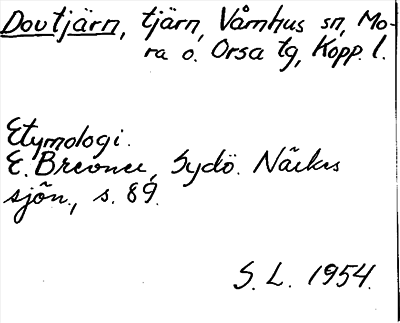 Dovtjärn, tjärn, Våmhus sn, Mo-
ra o. Orsa tg, Kopp. l.
Etymologi.
E. Brevner, Sydö. Närkes
sjön., s. 89.
S. L. 1954.